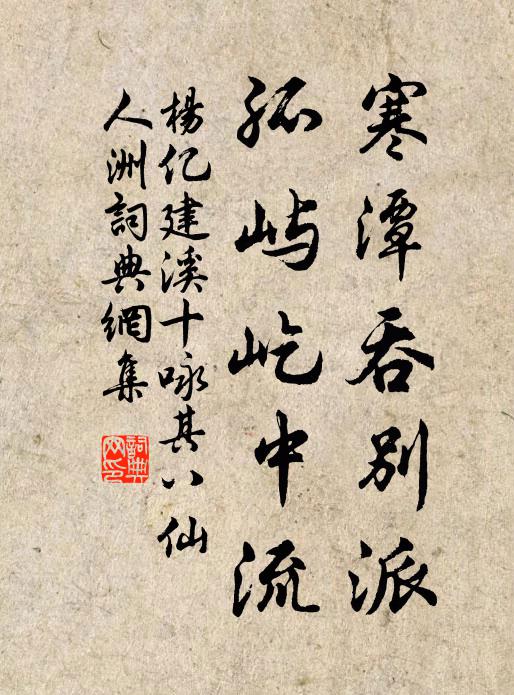 寒潭吞別派
孤屿屹中流
楊亿建溪十咏其八仙
人洲詞典網集
詞典
网印